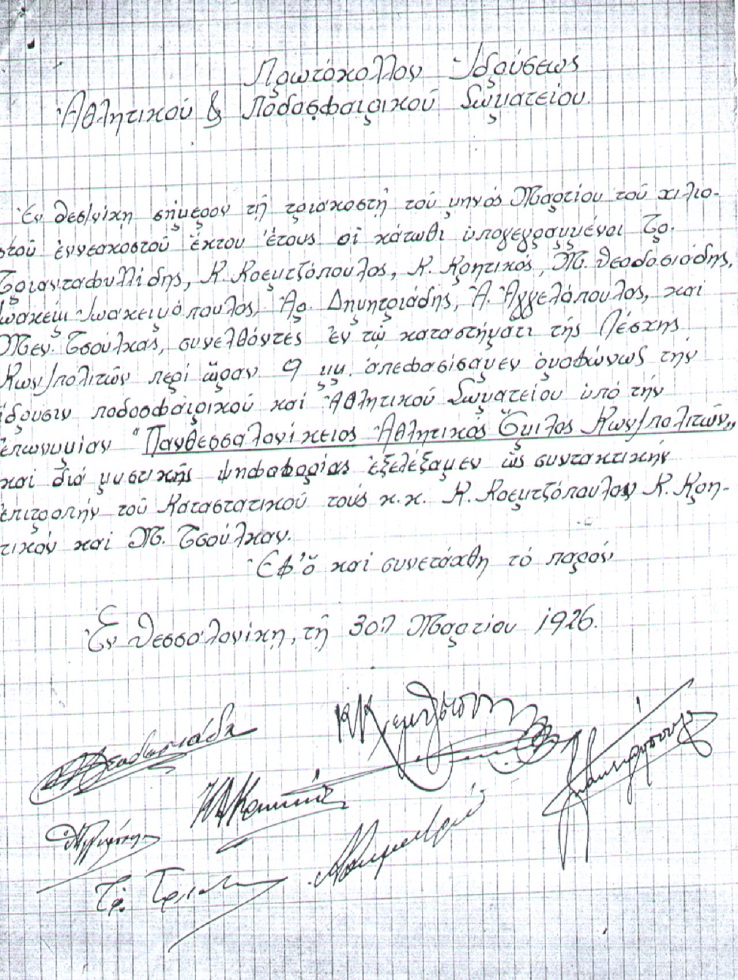 Πρωτόκολλον Ἱδρύσεως
Ἀθλητικοῦ & Ποδοσφαιρικοῦ Σωματείου.
Ἐν Θεσ/νίκῃ σήμερον τῇ τριακοστῇ τοῦ μηνός Μαρτίου τοῦ χιλιο-
στοῦ ἐννεακοστοῦ ἕκτου ἔτους οἱ κάτωθι ὑπογεγραμμένοι Τρ.
Τριανταφυλλίδης, Κ. Κρεμτζόπουλος, Κ. Κρητικός, Μ. Θεοδοσιάδης,
Ἰωακείμ Ἰωακειμόπουλος, Ἀρ. Δημητριάδης, Ἀ. Ἀγγελόπουλος, καί
Μεν. Τσούλκας, συνελθόντες ἐν τῷ καταστήματι τῆς Λέσχης
Κων/πολιτῶν περί ὥραν 9 μμ. ἀπεφασίσαμεν ὁμοφώνως τήν
ἵδρυσιν ποδοσφαιρικοῦ καί Ἀθλητικοῦ Σωματείου ὑπό τήν
ἐπωνυμίαν "Πανθεσσαλονίκειος Ἀθλητικός Ὅμιλος Κων/πολιτῶν„
καί διά μυστικῆς ψηφοφορίας ἐξελέξαμεν ὡς συντακτικήν
ἐπιτροπήν τοῦ Καταστατικοῦ τούς κ.κ. Κ. Κρεμτζόπουλον Κ. Κρη-
τικόν καί Μ. Τσούλκαν.
Ἐφ' ὅ καί συνετάχθη τό παρόν
Ἐν Θεσσαλονίκῃ, τῇ 30ῃ Μαρτίου 1926.